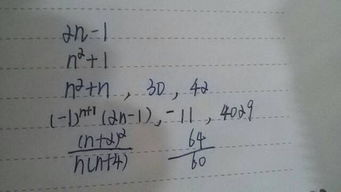 2n-1
n²+1
n²+n , 30 , 42
(-1)ⁿ⁺¹ (2n-1), -11 , 4029
(n+2)²/n(n+4) 64/60